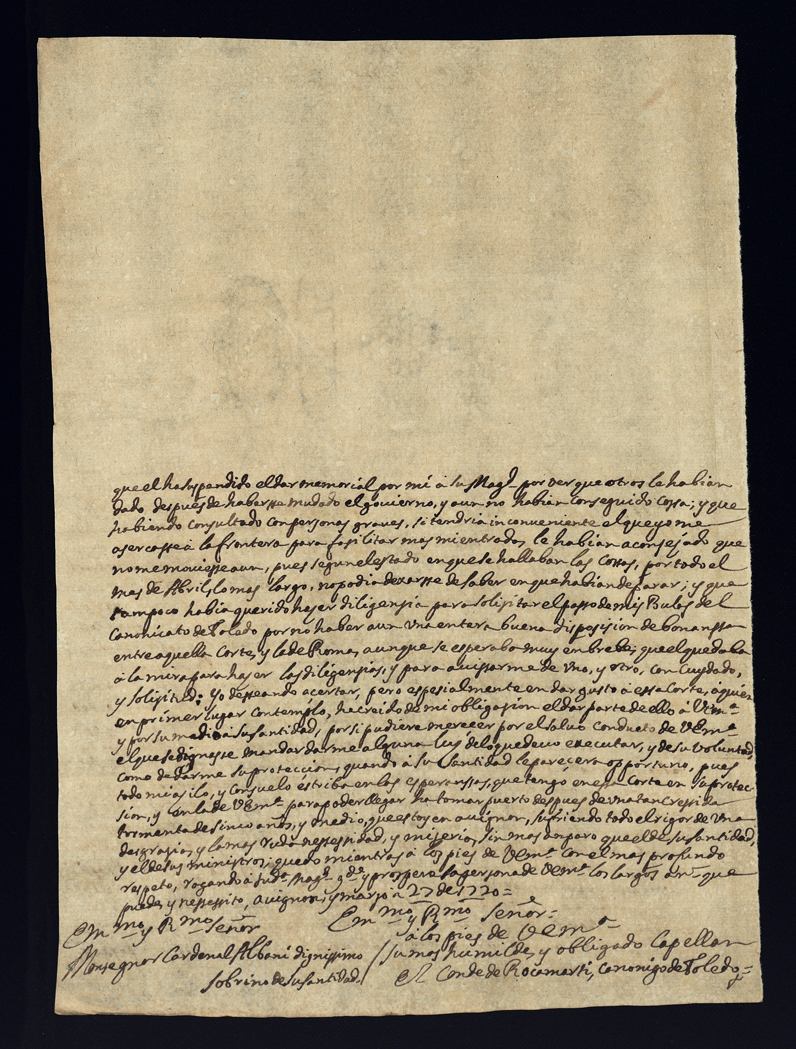 que el ha suspendido el dar memorial por mi à su Mag.d por ver que otros le habian
dado despues de haberse mudado el govierno, y aun no habian conseguido cossa; y que
habiendo consultado con personas graves, si tendria inconveniente el que yo me
asercasse à la frontera para fasilitar mas mi entrada, le habian aconsejado que
no me moviesse aun, pues segun el estado en que se hallaban las Cossas, por todo el
mes de Abril, lo mas largo, no podia dexarsse de saber en que habian de parar; y que
tampoco habia querido haser diligensia para solisitar el passo de mis Bulas del
Canonicato de Toledo por no haber aun una entera buena disposision de bonanssa
entre aquella Corte, y la de Roma, aunque se esperaba muy en brebe; que el quedaba
à la mira para haser las diligensias, y para avissarme de uno, y otro, con Cuydado,
y solisitud: Yo desseando acertar, pero espesialmente en dar gusto à essa Corte, à quien
en primer lugar contemplo, he creido de mi obligasion el dar parte de ello à V Em.a
y por su medio à su santidad, por si pudiere merecer por el salvo conducto de V Em.a
el que se dignesse mandar darme alguna lus de lo que devo executar, y de su voluntad,
como de darme su proteccion, quando à su Santidad le parecera opportuno, pues
todo mi asilo, y Consuelo estriba en las esperanssas, que tengo en essa Corte en su protec-
sion, y en la de V Em.a para poder llegar ha tomar puerto despues de una tan Cresida
tormenta de sinco años, y medio, que estoy en aviñon, sufriendo todo el rigor de una
desgrasia, y la mas ruda nessessidad, y miseria, sin mas amparo que el de su santidad,
y el de sus ministros; quedo mientras à los pies de V Em.a con el mas profundo
respeto, rogando à su d.a Mag.d g.de y prospere la persona de V Em.a los largos an.s que
puede, y nessessito, aviñon, y marzo à 27 de 1720=
Em.mo y R.mo señor Em.mo y R.mo Señor=
à los pies de V Em.a
Monsegnor Cardenal Albani dignissimo / su mas humilde, y obligado Capellan
sobrino de su santidad. El Conde de Rocamarti, Canonigo de Toledo=